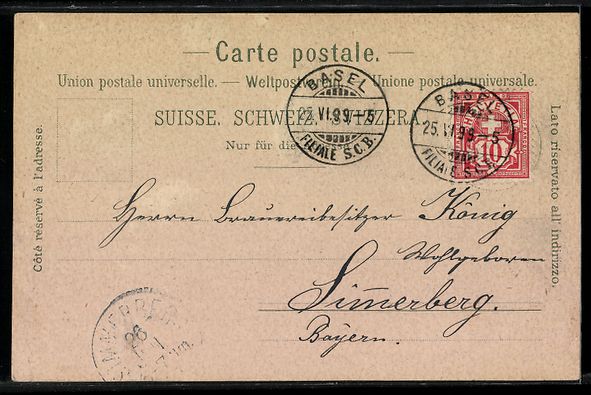 Carte postale.
Union postale universelle. — Weltpostverein — Unione postale universale.
SUISSE. SCHWEIZ. SVIZZERA.
Nur für die Adresse
Côté réservé à l'adresse.
Lato riservato all' indirizzo.
BASEL
25.VI.99–5
FILIALE S.C.B.
BASEL
25.VI.99–5
FILIALE S.C.B.
HELVETIA
10
Herrn Brauereibesitzer König
Wohlgeboren
Simerberg.
Bayern.
26